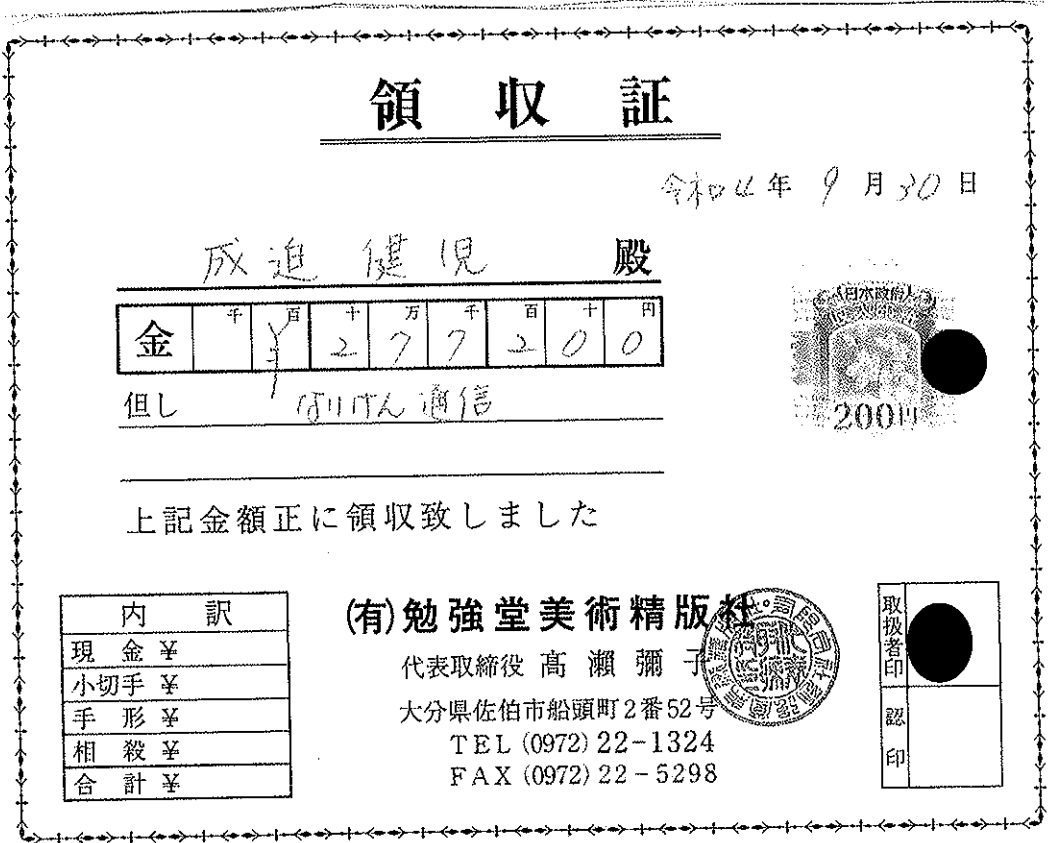 領収証
令和4年9月30日
成迫 健児 殿
金 千 百 十 万 千 百 十 円
¥277200
但し なりけん通信
上記金額正に領収致しました
日本政府
200円
内訳
現金¥
小切手¥
手形¥
相殺¥
合計¥
(有)勉強堂美術精版社
代表取締役 髙瀬彌子
大分県佐伯市船頭町2番52号
TEL (0972) 22-1324
FAX (0972) 22-5298
取扱者印
認印